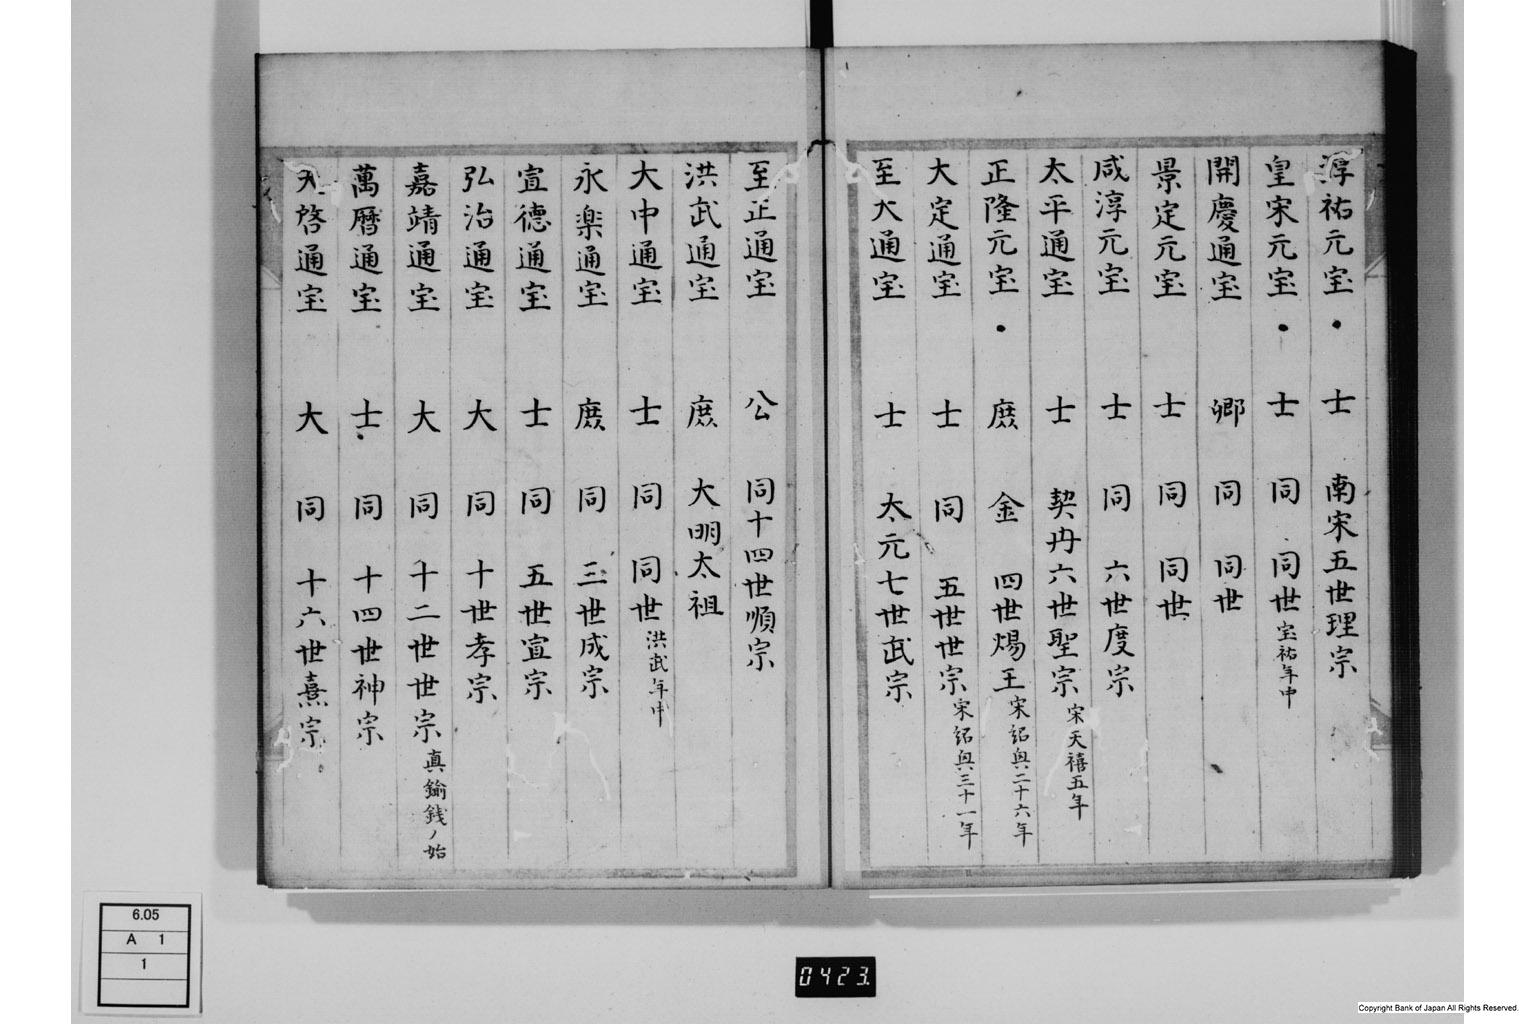 淳祐元宝 • 士 南宋五世理宗
皇宋元宝 • 士 同 同世 宝祐年中
開慶通宝 卿 同 同世
景定元宝 士 同 同世
咸淳元宝 士 同 六世度宗
太平通宝 士 契丹六世聖宗 宋天禧五年
正隆元宝 • 庶 金 四世煬王 宋紹興二十六年
大定通宝 士 同 五世世宗 宋紹興三十一年
至大通宝 士 大元七世武宗
至正通宝 公 同十四世順宗
洪武通宝 庶 大明太祖
大中通宝 士 同 同世 洪武年中
永楽通宝 庶 同 三世成宗
宣德通宝 士 同 五世宣宗
弘治通宝 大 同 十世孝宗
嘉靖通宝 大 同 十二世世宗 真鍮銭ノ始
萬曆通宝 士 同 十四世神宗
天啓通宝 大 同 十六世熹宗
6.05
A 1
1
0423.
Copyright Bank of Japan All Rights Reserved.